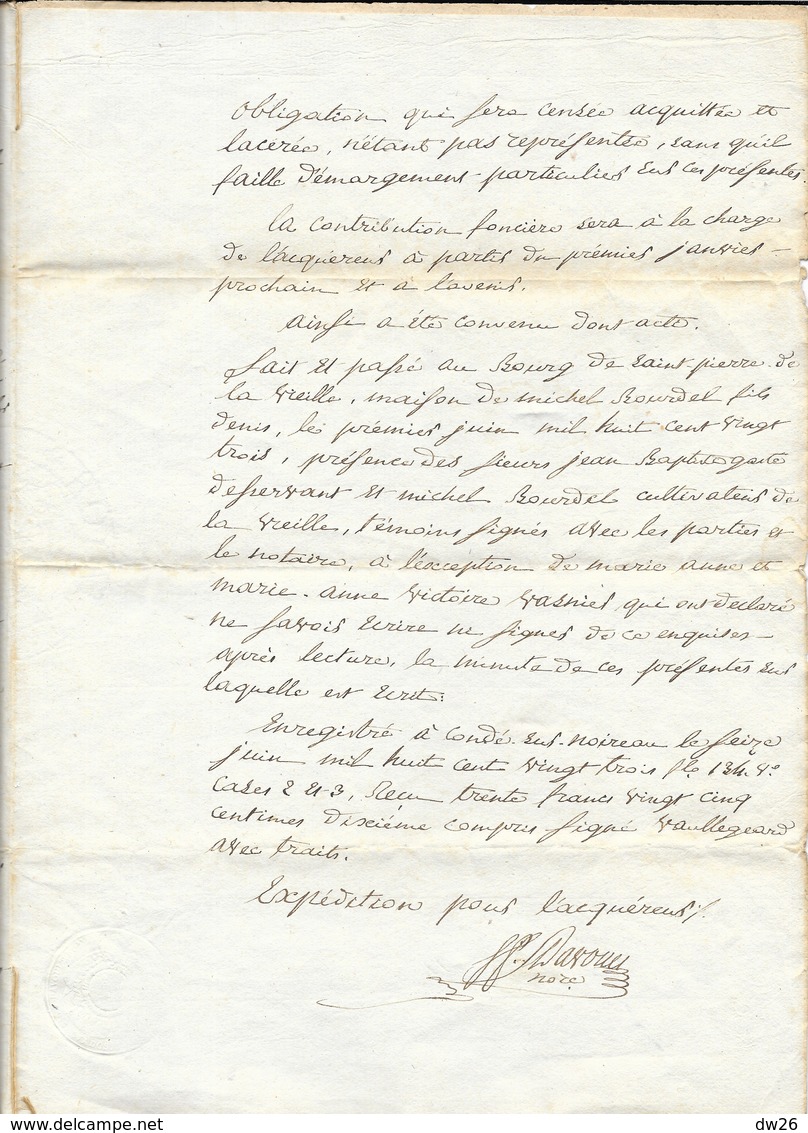 obligation qui sera censée acquittée et
lacérée, n'étant pas représentée, sans qu'il
faille d'émargement particulier sur ces présentes.
la contribution foncière sera à la charge
de l'acquéreur à partir du prémier janvier
prochain et a l'avenir.
ainsi a été convenu dont acte.
fait et passé au Bourg de saint-pierre-de
la vieille, maison de michel Bourdel fils
denis, le prémier juin mil huit cent vingt
trois, présence des sieurs jean Baptiste
desservant et michel Bourdel cultivateur de
la vieille, témoins signés avec les parties et
le notaire, à l'éxception de marie anne et
marie-anne victoire vasnier, qui ont déclaré
ne savoir écrire ni signer de ce enquises
après lecture, la minute de ces présentes sur
laquelle est écrit:
Enregistré à condé-sur-noireau le seize
juin mil huit cent vingt trois f.le 134 v.o
cases 2 et 3, Recu trente francs vingt cinq
centimes dixième compris signé vaullegeard
avec traits.
Expédition pour l'acquéreur /.
Davou
no.re
dw26